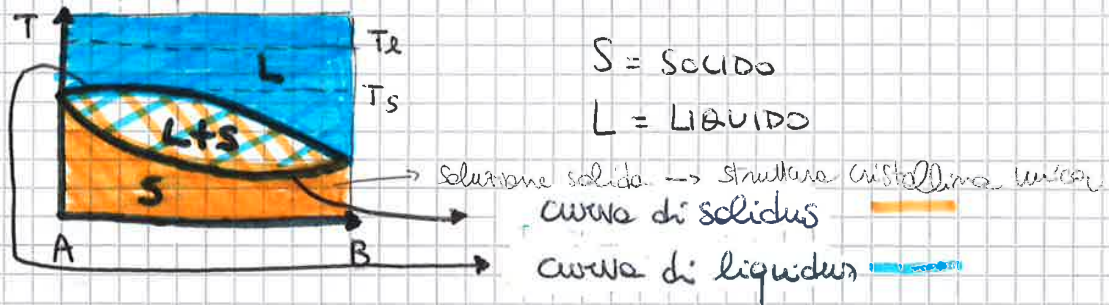 T
L
Tl
Ts
L+S
S
A
B
S = SOLIDO
L = LIQUIDO
soluzione solida --> struttura cristallina unica
curva di solidus
curva di liquidus